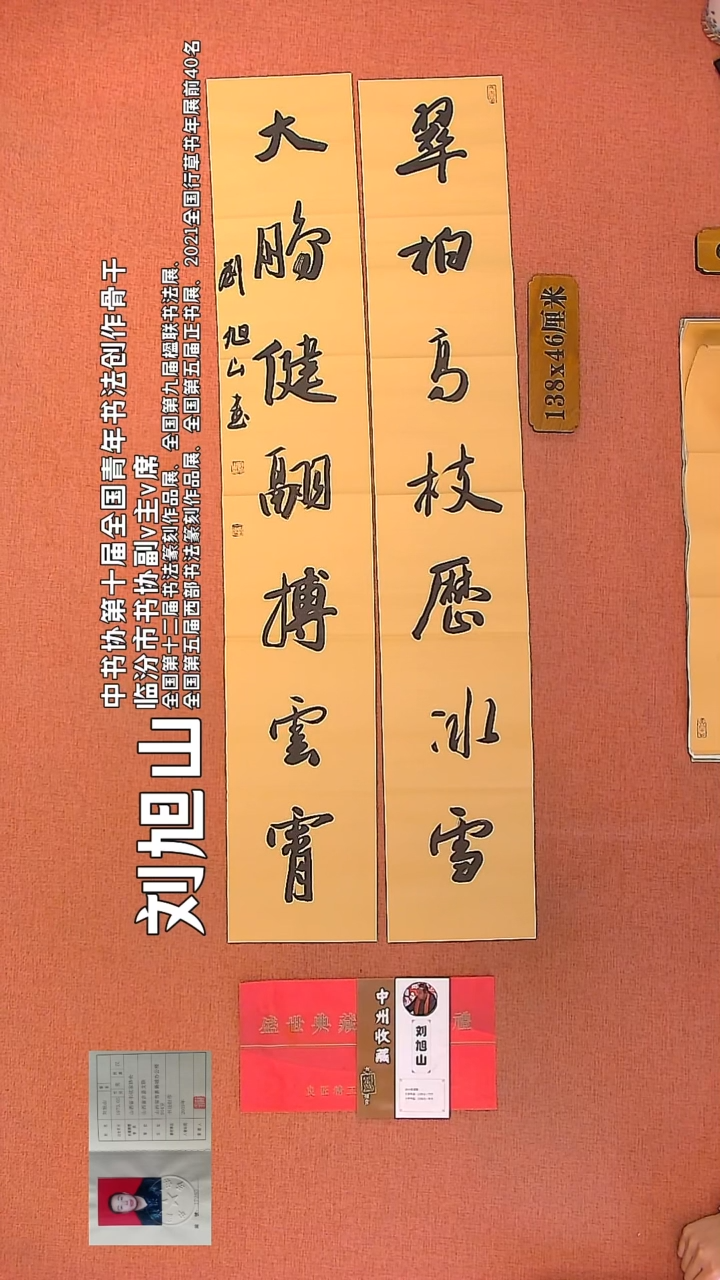 翠柏高枝歷冰雪
大鵬健翮搏雲霄
劉旭山書
138x46厘米
中书协第十届全国青年书法创作骨干
临汾市书协副v主v席
全国第十二届书法篆刻作品展、全国第九届楹联书法展、
全国第五届西部书法篆刻作品展、全国第五届正书展、2021全国行草书年展前40名
刘旭山
盛世典藏
禮
中州收藏
刘旭山